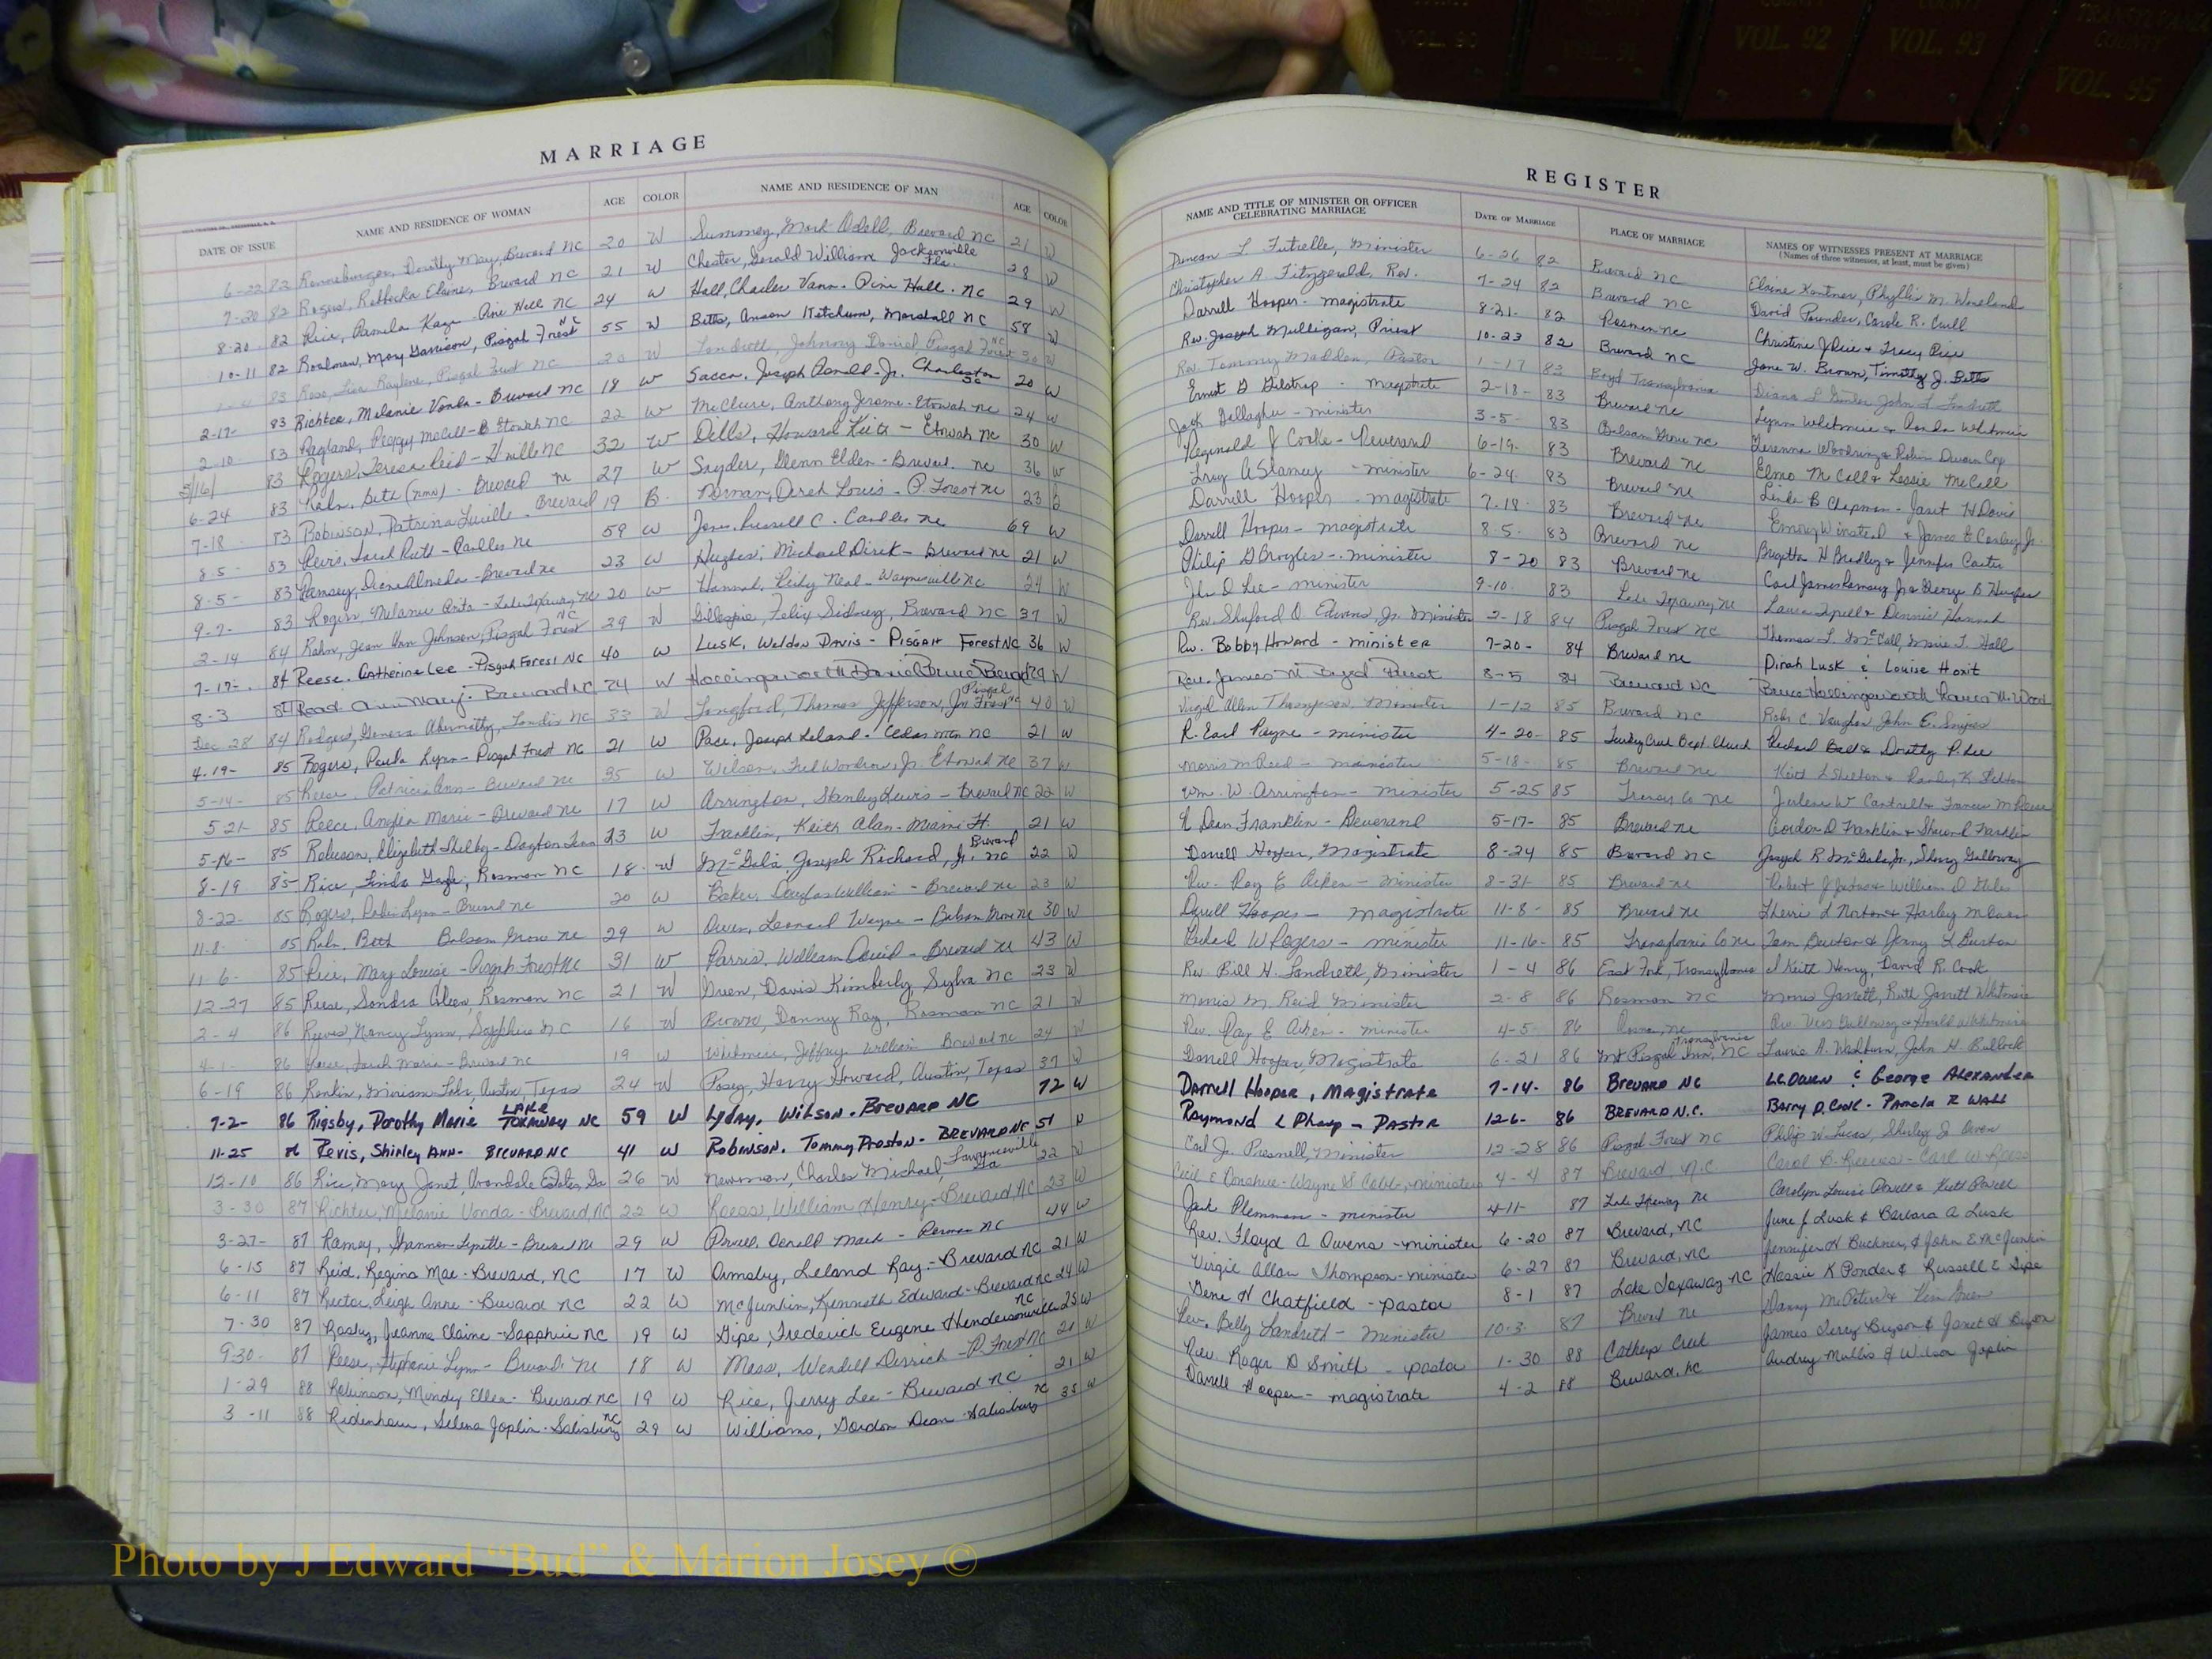 MARRIAGE
DATE OF ISSUE NAME AND RESIDENCE OF WOMAN AGE COLOR NAME AND RESIDENCE OF MAN AGE COLOR
6-22 82 Dorothy May, Brevard NC 20 W Summey, Mark Odell, Brevard NC 21 W
7-20 82 Rogers, Rebbecka Elaine, Brevard NC 21 W Chester, Gerald William Jacksonville Fla. 28 W
8-20 82 Rice, Pamela Kaye - Pine Hall NC 24 W Hall, Charles Vann - Pine Hall. NC 29 W
10-11 82 Rodman, Mary Garrison, Pisgah Forest NC 55 W Betts, Anson Ketchum, Marshall NC 58 W
83 Rose, Lisa Raylene, Pisgah Forest NC 20 W Landreth, Johnny Daniel Pisgah Forest NC 20 W
2-17- 83 Richter, Melanie Vonda - Brevard NC 18 W Sacca, Joseph Ronald - Jr. Charleston SC 20 W
2-10- 83 Ragland, Peggy McCall - Etowah NC 22 W McClure, Anthony Jerome - Etowah NC 24 W
5/16/ 83 Rogers, Teresa Reid - H'ville NC 32 W Dells, Howard - Etowah NC 30 W
6-24 83 (nmn) - Brevard NC 27 W Snyder, Glenn Elden - Brevard. NC 36 W
7-18 83 Robinson, Patrina Lucille - Brevard 19 B Norman, Derek Louis - P. Forest NC 23 B
8-5- 83 Revis, Sarah Ruth - Candler NC 59 W Jones, Russell C. Candler NC 69 W
8-5- 83 Ramsey, Diane Almeda - Brevard NC 23 W Hughes, Michael Direk - Brevard NC 21 W
9-7- 83 Rogers, Melanie Anita - Lake Toxaway, NC 20 W Hannah, Neal - Waynesville NC 24 W
2-14 84 Rahn, Jean Van Johnson, Pisgah Forest NC 29 W Gillespie, Felix Sidney, Brevard NC 37 W
7-17- 84 Reese, Catherine Lee - Pisgah Forest NC 40 W Lusk, Weldon Davis - Pisgah Forest NC 36 W
8-3 84 Read, Ann Mary - Brevard NC 24 W Hollingsworth Daniel Bruce Brevard 29 W
Dec 28 84 Rodgers, Geneva Abernathy, Landis NC 33 W Langford, Thomas Jefferson, Jr. Pisgah Forest NC 40 W
4-19- 85 Rogers, Paula Lynn - Pisgah Forest NC 21 W Pace, Joseph Leland - Cedar Mtn NC 21 W
5-14- 85 Reese, Patricia Ann - Brevard NC 35 W Wilson, Fred Woodrow, Jr. Etowah NC 37 W
5-21- 85 Reece, Angela Marie - Brevard NC 17 W Arrington, Stanley Lewis - Brevard NC 22 W
5-16- 85 Robeson, Elizabeth Shelby - Dayton Tenn 23 W Franklin, Keith Alan - Miami Fl. 21 W
8-19 85 Rice, Linda Gayle, Rosman NC 18 W McGaha, Joseph Richard, Jr. Brevard NC 22 W
8-22- 85 Rogers, Robin Lynn - Brevard NC 20 W Baker, Douglas William - Brevard NC 23 W
11-8 85 Beth Balsam Grove NC 29 W Owen, Leonard Wayne - Balsam Grove NC 30 W
11-6- 85 Rice, Mary Louise - Pisgah Forest NC 31 W Parris, William David - Brevard NC 43 W
12-27 85 Reese, Sandra Colleen, Rosman NC 21 W Green, Davis Kimberly, Sylva NC 23 W
2-4 86 Reeves, Nancy Lynn, Sapphire NC 16 W Brown, Danny Ray, Rosman NC 21 W
4-1- 86 Reese, Sarah Maria - Brevard NC 19 W Whitmire, Jeffrey William Brevard NC 24 W
6-19 86 Rankin, Miriam Austin, Texas 24 W Posey, Harry Howard, Austin, Texas 37 W
7-2- 86 Rigsby, Dorothy Marie LAKE TOXAWAY NC 59 W Lyday, Wilson - BREVARD NC 72 W
11-25 86 Revis, Shirley Ann - BREVARD NC 41 W Robinson, Tommy Preston - BREVARD NC 51 W
12-10 86 Rice, Mary Janet, Avondale Estates, Ga 26 W Newman, Charles Michael, Lawrenceville Ga 22 W
3-30 87 Richter, Melanie Vonda - Brevard, NC 22 W Reese, William Henry - Brevard, NC 23 W
3-27- 87 Ramey, Shannon Lynette - Brevard NC 29 W Powell, Darell Mack - Rosman NC 44 W
6-15 87 Reid, Regina Mae - Brevard, NC 17 W Ormsby, Leland Ray - Brevard NC 21 W
6-11 87 Rector, Leigh Anne - Brevard NC 22 W McJunkin, Kenneth Edward - Brevard NC 24 W
7-30 87 Rasby, Jeanna Elaine - Sapphire NC 19 W Gipe, Frederick Eugene Hendersonville NC 25 W
9-30- 87 Reese, Stephanie Lynn - Brevard NC 18 W Mass, Wendell Derrick - P. Forest NC 21 W
1-29 88 Robinson, Mindy Ellen - Brevard NC 19 W Rice, Jerry Lee - Brevard NC 21 W
3-11 88 Ridenhour, Selena Joplin - Salisbury NC 29 W Williams, Gordon Dean - Salisbury NC 35 W
REGISTER
NAME AND TITLE OF MINISTER OR OFFICER CELEBRATING MARRIAGE DATE OF MARRIAGE PLACE OF MARRIAGE NAMES OF WITNESSES PRESENT AT MARRIAGE
(Names of three witnesses, at least, must be given)
Duncan L. Futrelle, Minister 6-26 82 Brevard NC Elaine Kantner, Phyllis M. Woreland
Christopher A. Fitzgerald, Rev. 7-24 82 Brevard NC David Pounder, Carole R. Cull
Darrell Hooper - magistrate 8-21- 82 Rosman NC Christine J Rice & Tracy Rice
Rev. Joseph Mulligan, Priest 10-23 82 Brevard NC Jane W. Brown, Timothy J. Betts
Rev. Tommy Madden, Pastor 1-17 83 Boyd Transylvania John L. Landreth
Ernest G Gilstrap - magistrate 2-18- 83 Brevard NC Lynn Whitmire & Ronda Whitmire
Jack Gallagher - minister 3-5- 83 Balsam Grove NC
Reginald J Cooke - Reverend 6-19- 83 Brevard NC Elmo McCall & Lessie McCall
Troy A Stamey - minister 6-24- 83 Brevard NC Linda B Chapman - Janet H Davis
Darrell Hooper - magistrate 7-18- 83 Brevard NC Emory Winsted & James E Conley Jr.
Darrell Hooper - magistrate 8-5- 83 Brevard NC Brigetta H Bradley & Jennifer Carter
Philip G Broyles - minister 8-20 83 Brevard NC Carl James Ramsey Jr & George B Hughes
Jh. D Lee - minister 9-10- 83 Lake Toxaway NC Dennis Hannah
Rev. Shuford O. Edmans, Jr. Minister 2-18 84 Pisgah Forest NC Thomas L. McCall, Marie T. Hall
Rev. Bobby Howard - minister 7-20- 84 Brevard NC Dinah Lusk & Louise Hoxit
Rev. James M Priest 8-5 84 Brevard NC Bruce Hollingsworth Lauren M. Wood
Virgil Allen Thompson, Minister 1-12 85 Brevard NC Robt C. Vaughan, John E. Snipes
R. Earl Payne - minister 4-20- 85 Turkey Creek Bapt Church Richard Ball & Dorothy P. Lee
Morris M Reid - minister 5-18- 85 Brevard NC Keith L Shelton &
Wm. W. Arrington - minister 5-25 85 Transy Co NC Jerlene W Cantrell & Frances M Reece
E Dean Franklin - Reverend 5-17- 85 Brevard NC Gordon D Franklin & Sherond Franklin
Darrell Hooper, Magistrate 8-24 85 Brevard NC Joseph R. McGaha, Jr., Sherry Galloway
Rev. Ray E Aiken - minister 8-31- 85 Brevard NC
Darrell Hooper - magistrate 11-8- 85 Brevard NC Sherri L Norton & Harley M Owen
Richard W Rogers - minister 11-16- 85 Transylvania Co NC Tom Burton & Jenny L Burton
Rev. Bill H. Landreth, Minister 1-4 86 East Fork, Transylvania J Keith Henry, David R. Cook
Morris M. Reid Minister 2-8 86 Rosman NC Morris Jarrett, Ruth Jarrett Whitmire
Rev. Ray E Aiken - minister 4-5- 86 Galloway & Harold Whitmire
Darrell Hooper, Magistrate 6-21 86 Mt Pisgah Inn, Transylvania NC Laurie A. Washburn, John H. Bullock
Darrell Hooper, Magistrate 7-14- 86 BREVARD NC L.C. Owen & George Alexander
Raymond L Pharp - Pastor 12-6- 86 BREVARD N.C. Barry D. Cook - Pamela R Wall
Carl Jr. Presnell, Minister 12-28 86 Pisgah Forest NC Philip W. Lucas, Shirley J. Owen
Cecil E Donahue - Wayne S Cobb - ministers 4-4 87 Brevard, N.C. Carol B. Reeves - Carl W. Reese
Jack Plemmons - minister 4-11- 87 Lake Toxaway NC Carolyn Louise Powell & Keith Powell
Rev. Floyd A Owens - minister 6-20 87 Brevard, NC June J Lusk & Barbara A Lusk
Virgie Allan Thompson - minister 6-27 87 Brevard, NC Jennifer H Buckner, & John E McJunkin
Gene H Chatfield - Pastor 8-1 87 Lake Toxaway NC Hassie K Ponder & Russell E Gipe
Rev. Billy Landreth - minister 10-3- 87 Brevard NC Danny McPeters & Green
Rev. Roger D Smith - pastor 1-30 88 Catheys Creek James Terry Bryson & Janet H Bryson
Darrell Hooper - magistrate 4-2 88 Brevard, NC Audrey Mullis & Wilson Joplin
VOL. 90
VOL. 91
COUNTY VOL. 92
COUNTY VOL. 93
TRANSYLVANIA COUNTY VOL. 95
Photo by J Edward “Bud” & Marion Josey ©